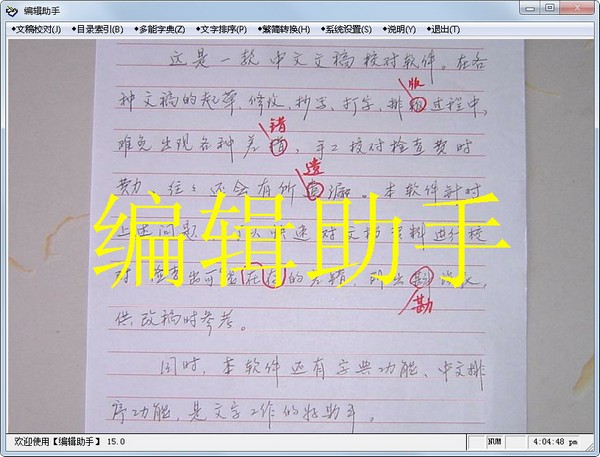 编辑助手
◆文稿校对(J) ◆目录索引(B) ◆多能字典(Z) ◆文字排序(P) ◆繁简转换(H) ◆系统设置(S) ◆说明(Y) ◆退出(T)
这是一款中文文稿校对软件。在各
版
种文稿的起草、修改、抄写、打字、排 过程中,
错
难免出现各种差 ,手工校对检查费时
遗
费力,往往还会有所 漏。本软件针对
编辑助手
上述问题 快速对文档资料进行校
对,查出可能在存的差错,列出 误表,
勘
供改稿时参考。
同时,本软件还有字典功能、中文排
序功能,是文字工作的好助手。
欢迎使用【编辑助手】 15.0 NUM 4:04:48 pm